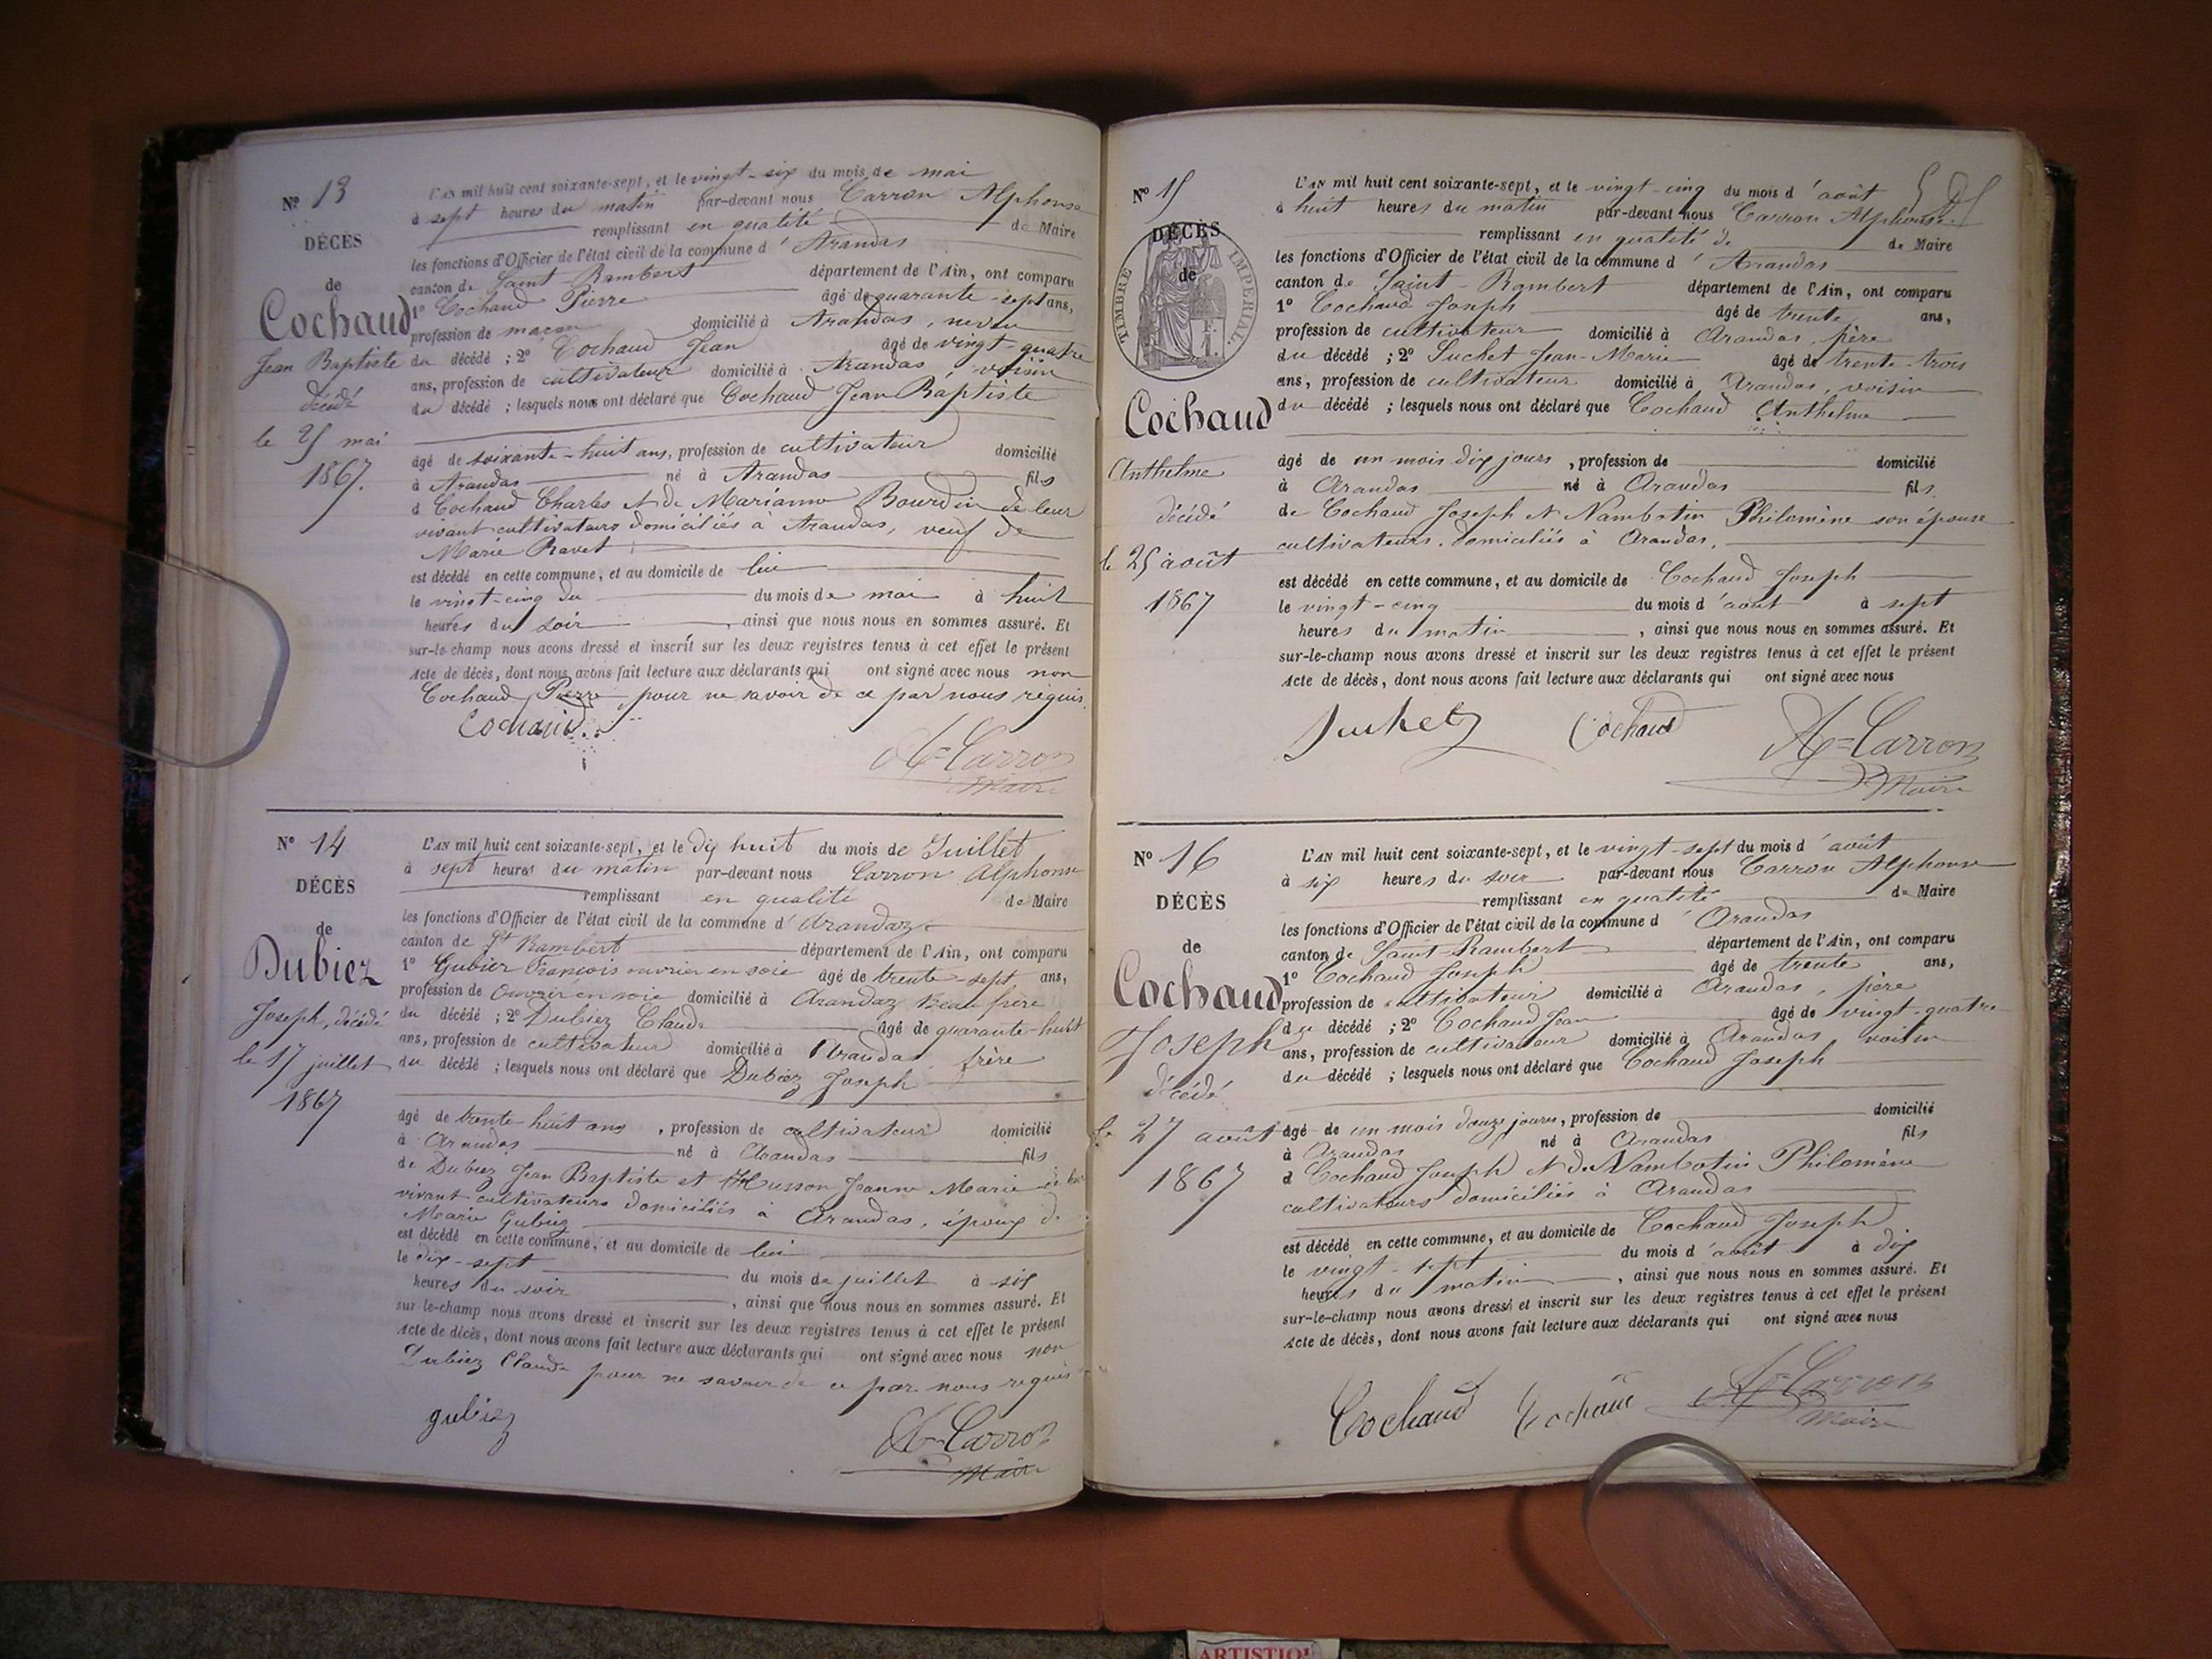 N° 13
DÉCÈS
de
Cochaud
Jean Baptiste
décédé
le 25 mai
1867.
L'AN mil huit cent soixante-sept, et le vingt-six du mois de mai
à sept heures du matin par-devant nous Carron Alphonse
remplissant en qualité de Maire
les fonctions d'Officier de l'état civil de la commune d'Arandas
canton de Saint-Rambert département de l'Ain, ont comparu
1° Cochaud Pierre âgé de quarante-sept ans,
profession de maçon domicilié à Arandas, neveu
du décédé ; 2° Cochaud Jean âgé de vingt-quatre
ans, profession de cultivateur domicilié à Arandas voisin
du décédé ; lesquels nous ont déclaré que Cochaud Jean Baptiste
âgé de soixante-huit ans, profession de cultivateur domicilié
à Arandas né à Arandas fils
d Cochaud Charles et de Marianne Bourdin de leur
vivant cultivateurs domiciliés à Arandas, veuf de
Marie Ravet
est décédé en cette commune, et au domicile de lui
le vingt-cinq du du mois de mai à huit
heures du soir, ainsi que nous nous en sommes assuré. Et
sur-le-champ nous avons dressé et inscrit sur les deux registres tenus à cet effet le présent
Acte de décès, dont nous avons fait lecture aux déclarants qui ont signé avec nous non
Cochaud Pierre pour ne savoir de ce par nous requis.
Cochaud
A Carron
Maire
N° 14
DÉCÈS
de
Dubiez
Joseph, décédé
le 17 juillet
1867
L'AN mil huit cent soixante-sept, et le dix huit du mois de Juillet
à sept heures du matin par-devant nous Carron Alphonse
remplissant en qualité de Maire
les fonctions d'Officier de l'état civil de la commune d'Arandaz
canton de St Rambert département de l'Ain, ont comparu
1° Gubiez François ouvrier en soie âgé de trente-sept ans,
profession de ouvrier en soie domicilié à Arandaz beau frère
du décédé ; 2° Dubiez Claude âgé de quarante-huit
ans, profession de cultivateur domicilié à Arandas frère
du décédé ; lesquels nous ont déclaré que Dubiez Joseph
âgé de trente-huit ans, profession de cultivateur domicilié
à Arandas né à Arandas fils
de Dubiez Jean Baptiste et Husson Jeanne Marie de leur
vivant cultivateurs domiciliés à Arandas, époux de
Marie Gubiez
est décédé en cette commune, et au domicile de lui
le dix-sept du mois de juillet à six
heures du soir, ainsi que nous nous en sommes assuré. Et
sur-le-champ nous avons dressé et inscrit sur les deux registres tenus à cet effet le présent
Acte de décès, dont nous avons fait lecture aux déclarants qui ont signé avec nous non
Dubiez Claude pour ne savoir de ce par nous requis
gubiez
A Carron
Maire
N° 15
DÉCÈS
de
TIMBRE IMPERIAL.
Cochaud
Anthelme
décédé
le 25 août
1867
L'AN mil huit cent soixante-sept, et le vingt-cinq du mois d'août
à huit heures du matin par-devant nous Carron Alphonse
remplissant en qualité de de Maire
les fonctions d'Officier de l'état civil de la commune d'Arandas
canton de Saint-Rambert département de l'Ain, ont comparu
1° Cochaud Joseph âgé de trente ans,
profession de cultivateur domicilié à Arandas, père
du décédé ; 2° Suchet Jean-Marie âgé de trente-trois
ans, profession de cultivateur domicilié à Arandas, voisin
du décédé ; lesquels nous ont déclaré que Cochaud Anthelme
âgé de un mois dix jours, profession de domicilié
à Arandas né à Arandas fils
de Cochaud Joseph et Nambotin Philomène son épouse
cultivateurs domiciliés à Arandas.
est décédé en cette commune, et au domicile de Cochaud Joseph
le vingt-cinq du mois d'août à sept
heures du matin, ainsi que nous nous en sommes assuré. Et
sur-le-champ nous avons dressé et inscrit sur les deux registres tenus à cet effet le présent
Acte de décès, dont nous avons fait lecture aux déclarants qui ont signé avec nous
Suchet Cochaud A Carron
Maire
N° 16
DÉCÈS
de
Cochaud
Joseph
décédé
le 27 août
1867
L'AN mil huit cent soixante-sept, et le vingt-sept du mois d'août
à six heures du soir par-devant nous Carron Alphonse
remplissant en qualité de Maire
les fonctions d'Officier de l'état civil de la commune d'Arandas
canton de Saint-Rambert département de l'Ain, ont comparu
1° Cochaud Joseph âgé de trente ans,
profession de cultivateur domicilié à Arandas, père
du décédé ; 2° Cochaud Jean âgé de vingt-quatre
ans, profession de cultivateur domicilié à Arandas voisin
du décédé ; lesquels nous ont déclaré que Cochaud Joseph
âgé de un mois douze jours, profession de domicilié
à Arandas né à Arandas fils
d Cochaud Joseph et de Nambotin Philomène
cultivateurs domiciliés à Arandas
est décédé en cette commune, et au domicile de Cochaud Joseph
le vingt-sept du mois d'août à dix
heures du matin, ainsi que nous nous en sommes assuré. Et
sur-le-champ nous avons dressé et inscrit sur les deux registres tenus à cet effet le présent
Acte de décès, dont nous avons fait lecture aux déclarants qui ont signé avec nous
Cochaud Cochaud A Carron
Maire